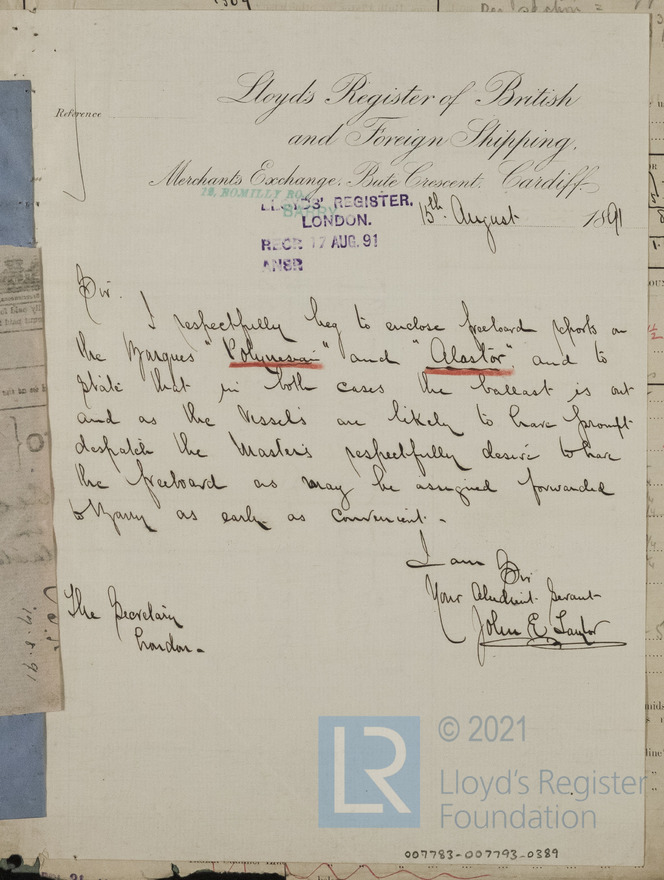 Reference
Lloyd's Register of British
and Foreign Shipping,
Merchants Exchange, Bute Crescent, Cardiff
LLOYDS' REGISTER.
LONDON.
RECR 17 AUG. 91
ANSR
15th August 1891
Sir.
I respectfully beg to enclose freeboard reports on
the Barques "Polynesian" and "Alastor" and to
state that in both cases the ballast is out
and as the Vessels are likely to have prompt
despatch the Masters respectfully desire to have
the freeboard as may be assigned forwarded
to Barry as early as convenient.
I am Sir
Your Obedient Servant
John E Taylor
The Secretary
London.
17.8.91
© 2021
LR
Lloyd's Register
Foundation
007783-007793-0389